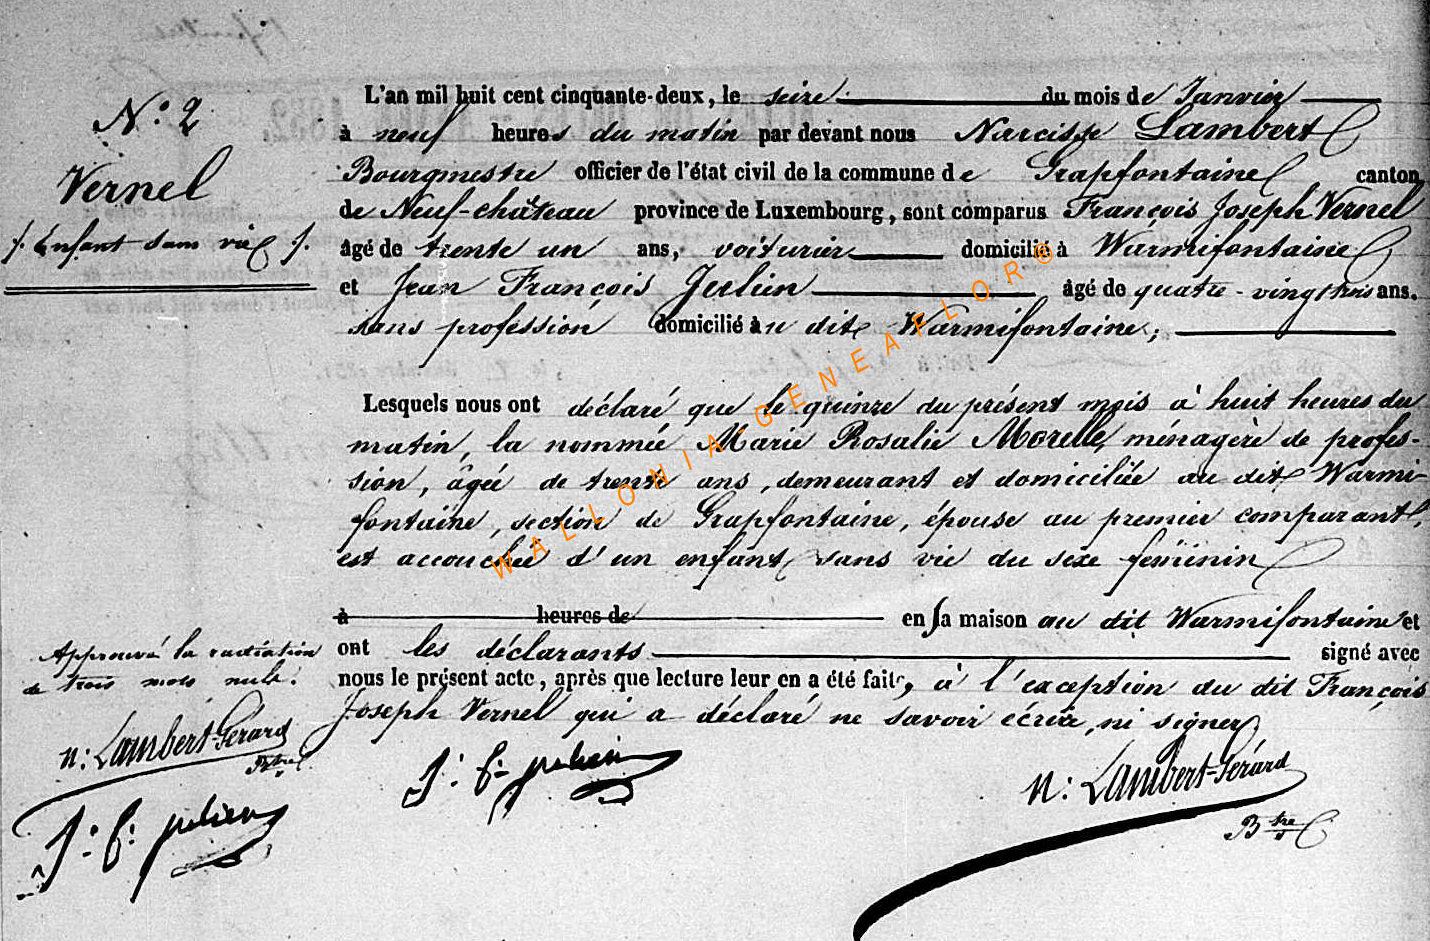 N.° 2
Vernel
/. Enfant sans vie /.
L'an mil huit cent cinquante-deux, le seize du mois de Janvier
à neuf heures du matin par devant nous Narcisse Lambert
Bourgmestre officier de l'état civil de la commune de Grapfontaine canton
de Neuf-château province de Luxembourg, sont comparus François Joseph Vernel
âgé de trente un ans, voiturier domicilié à Warmifontaine
et Jean François Julien âgé de quatre-vingt trois ans.
sans profession domicilié au dit Warmifontaine;
Lesquels nous ont déclaré que le quinze du présent mois à huit heures du
matin, la nommée Marie Rosalie Morelle, ménagère de profes-
sion, âgée de trente ans, demeurant et domiciliée au dit Warmi-
fontaine, section de Grapfontaine, épouse au premier comparant,
est accouchée d'un enfant sans vie du sexe feminin
à heures de en sa maison au dit Warmifontaine et
ont les déclarants signé avec
nous le présent acte, après que lecture leur en a été faite, à l'exception du dit François
Joseph Vernel qui a déclaré ne savoir écrire, ni signer
Approuvé la radiation
de trois mots nuls.
n: Lambert-Gérard
Btre
J. f. julien
J. f. julien
n: Lambert-Gérard
Btre
WALLONIA-GENEAFLOR®